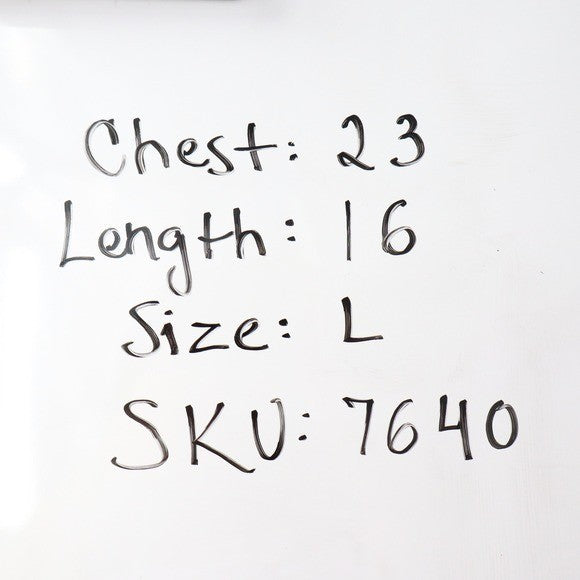 Chest: 23
Length: 16
Size: L
SKU: 7640